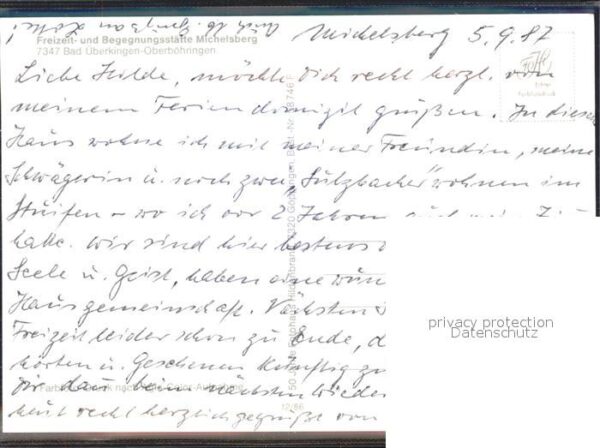 Auch Gruß an Lotte!
Freizeit- und Begegnungsstätte Michelsberg
7347 Bad Überkingen-Oberböhringen
Michelsberg 5.9.87
Liebe Hilde, möchte Dich recht herzl. von
meinem Feriendomizil grüßen. In diesem
Haus wohne ich mit meiner Freundin, meine
Schwägerin u. noch zwei Sulzbacher" wohnen im
Stuifen - wo ich vor 2 Jahren
hatte. Wir sind hier bestens
Seele u. Geist, haben eine
Hausgemeinschaft. Nächsten
Freizeit leider schon zu Ende,
hörten u. Gesehenen künftig zu
Dir dann beim nächsten Wieder
heut recht herzlich gegrüßt von
12/86
privacy protection
Datenschutz